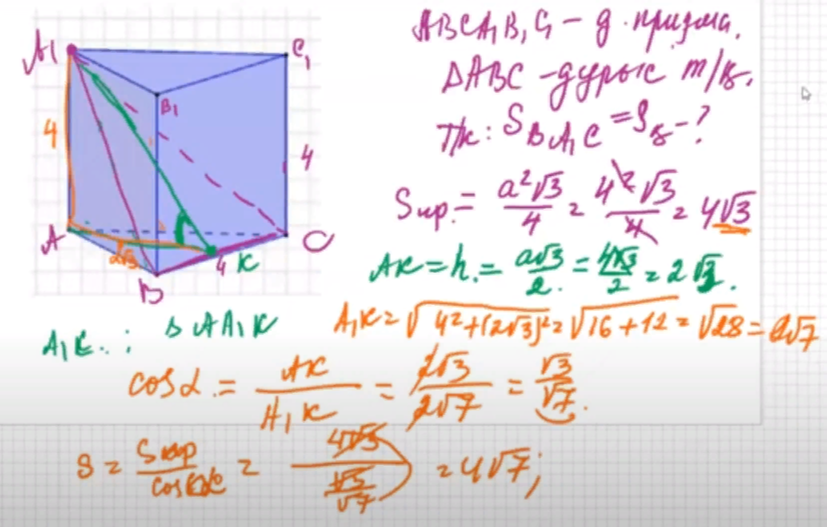 A₁ C₁ ABCA₁B₁C₁ – д. призма.
B₁ ΔABC – дурыс т/б.
4 4 Т/к: S_BA₁C = S_б – ?
Sпр. = a²√3/4 = 4²√3/4 = 4√3
A C
2√3 4 K AK = h. = a√3/2 = 4√3/2 = 2√3.
B
A₁K.: ΔAA₁K A₁K = √4²+(2√3)² = √16+12 = √28 = 2√7
cosα. = AK/A₁K = 2√3/2√7 = √3/√7.
S = Sпр/cosα = 4√3/(√3/√7) = 4√7;